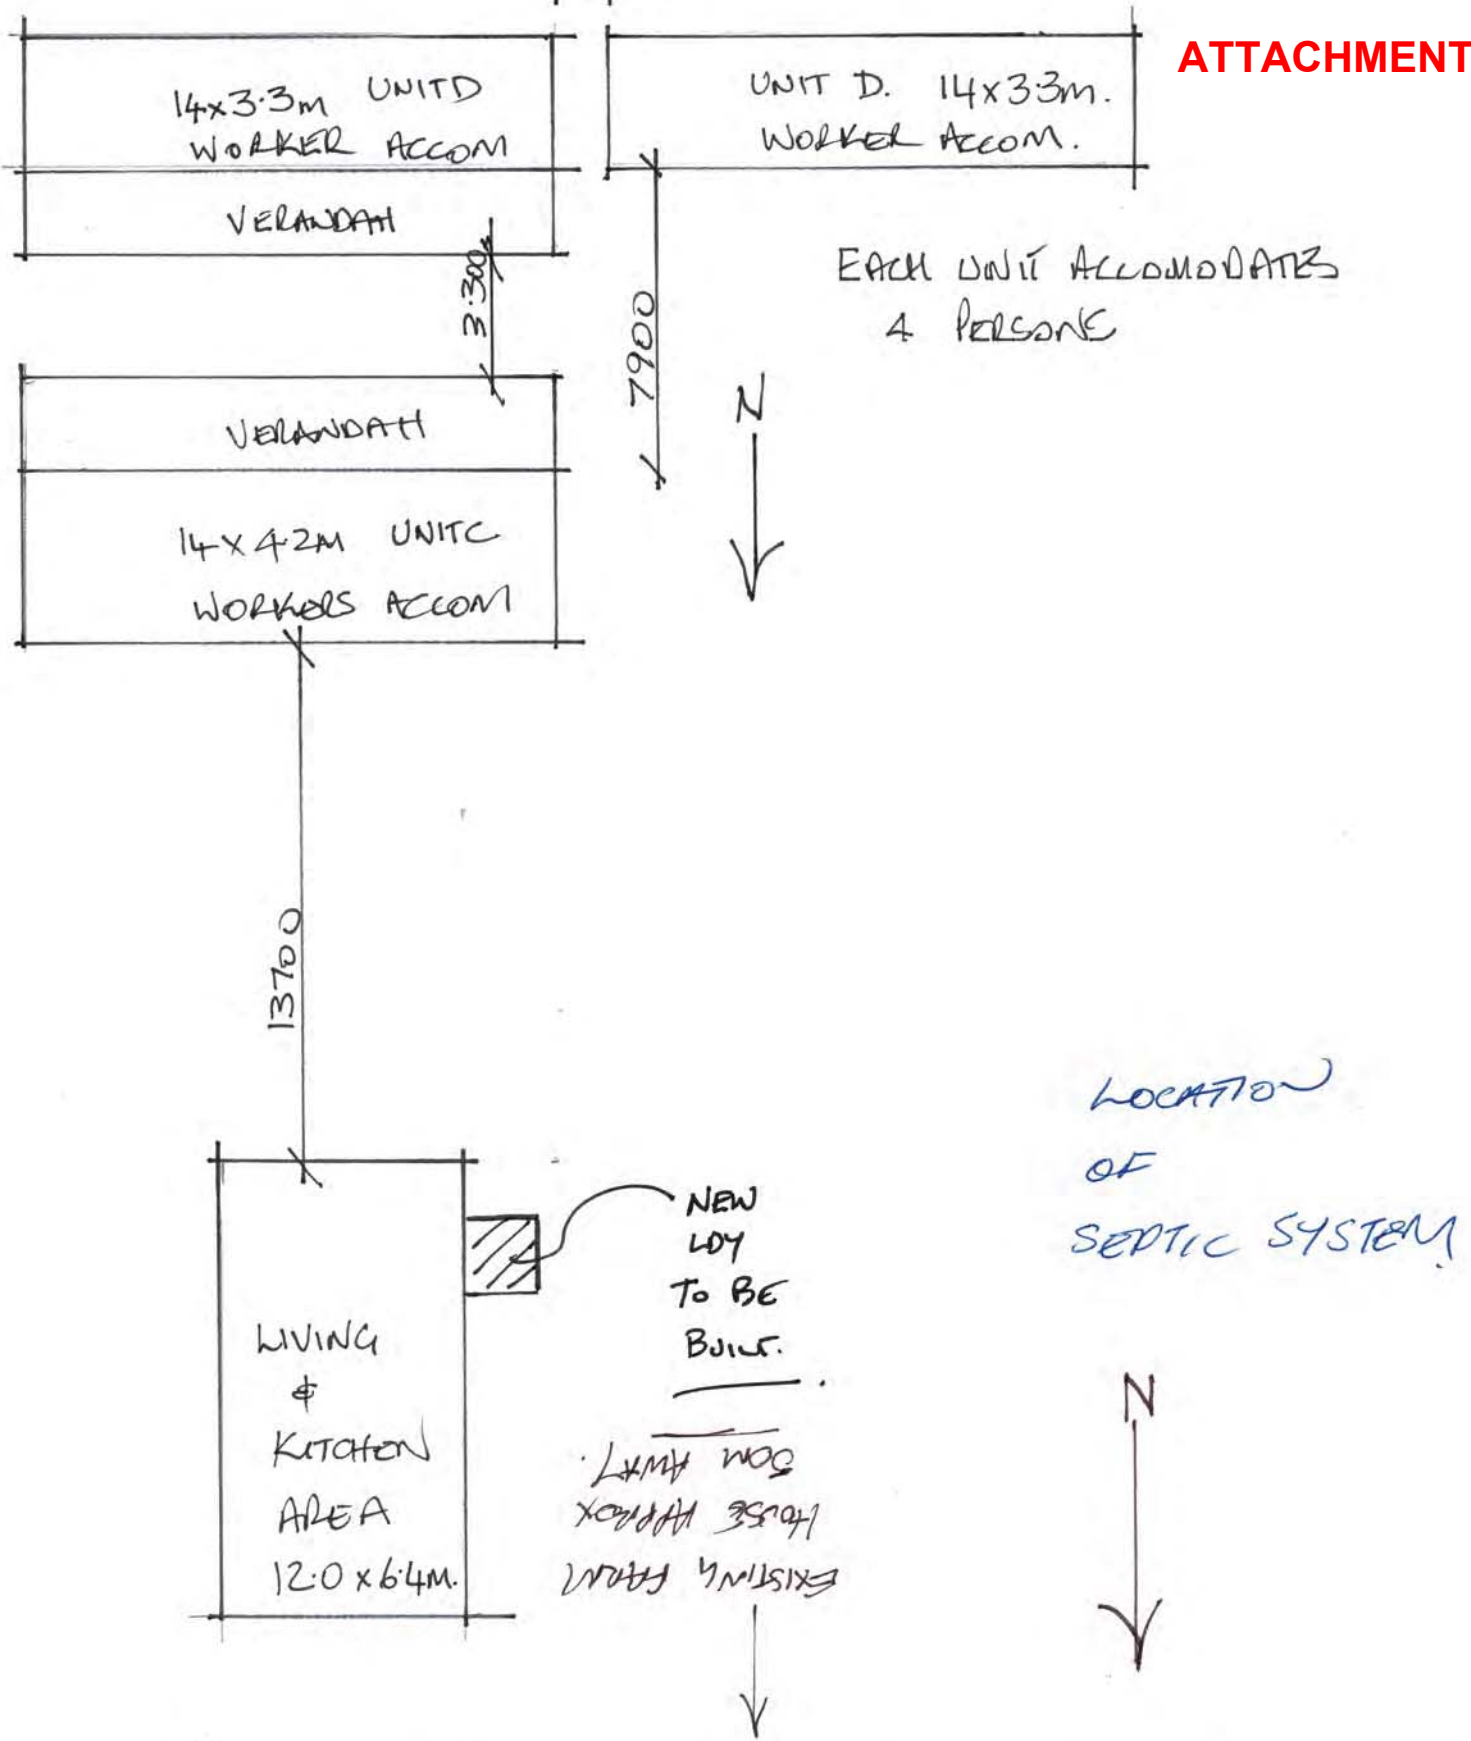 ATTACHMENT
14x3·3m UNIT D
WORKER ACCOM
VERANDAH
UNIT D. 14x3·3m.
WORKER ACCOM.
3·300
7900
EACH UNIT ACCOMODATES
4 PERSONS
N
VERANDAH
14 X 4·2M UNIT C
WORKERS ACCOM
13700
LOCATION
OF
SEPTIC SYSTEM.
NEW
LDY
TO BE
BUILT.
LIVING
&
KITCHEN
AREA
12·0 x 6·4M.
EXISTING FARM
HOUSE APPROX
50M AWAY.
N